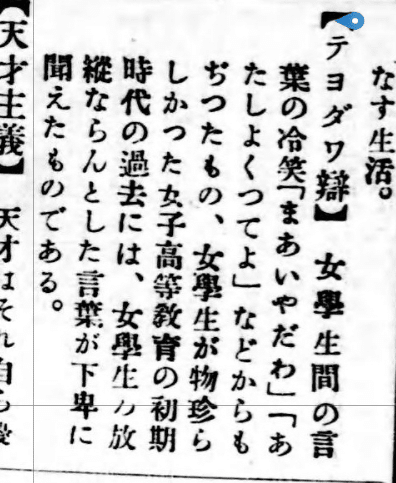 なす生活。
【テヨダワ辯】 女學生間の言
葉の冷笑「まあいやだわ」「あ
たしよくつてよ」などからも
ぢつたもの、女學生が物珍ら
しかつた女子高等教育の初期
時代の過去には、女學生の放
縱ならんとした言葉が下卑に
聞えたものである。
【天才主義】 天才はそれ自ら